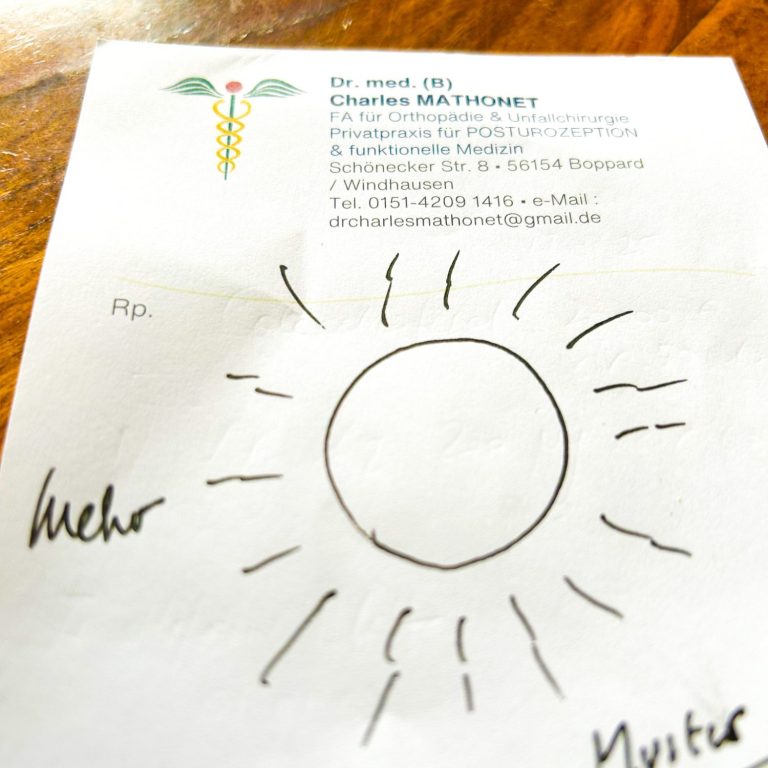 Dr. med. (B)
Charles MATHONET
FA für Orthopädie & Unfallchirurgie
Privatpraxis für POSTUROZEPTION
& funktionelle Medizin
Schönecker Str. 8 • 56154 Boppard
/ Windhausen
Tel. 0151-4209 1416 • e-Mail :
drcharlesmathonet@gmail.de
Rp.
Mehr
Muster